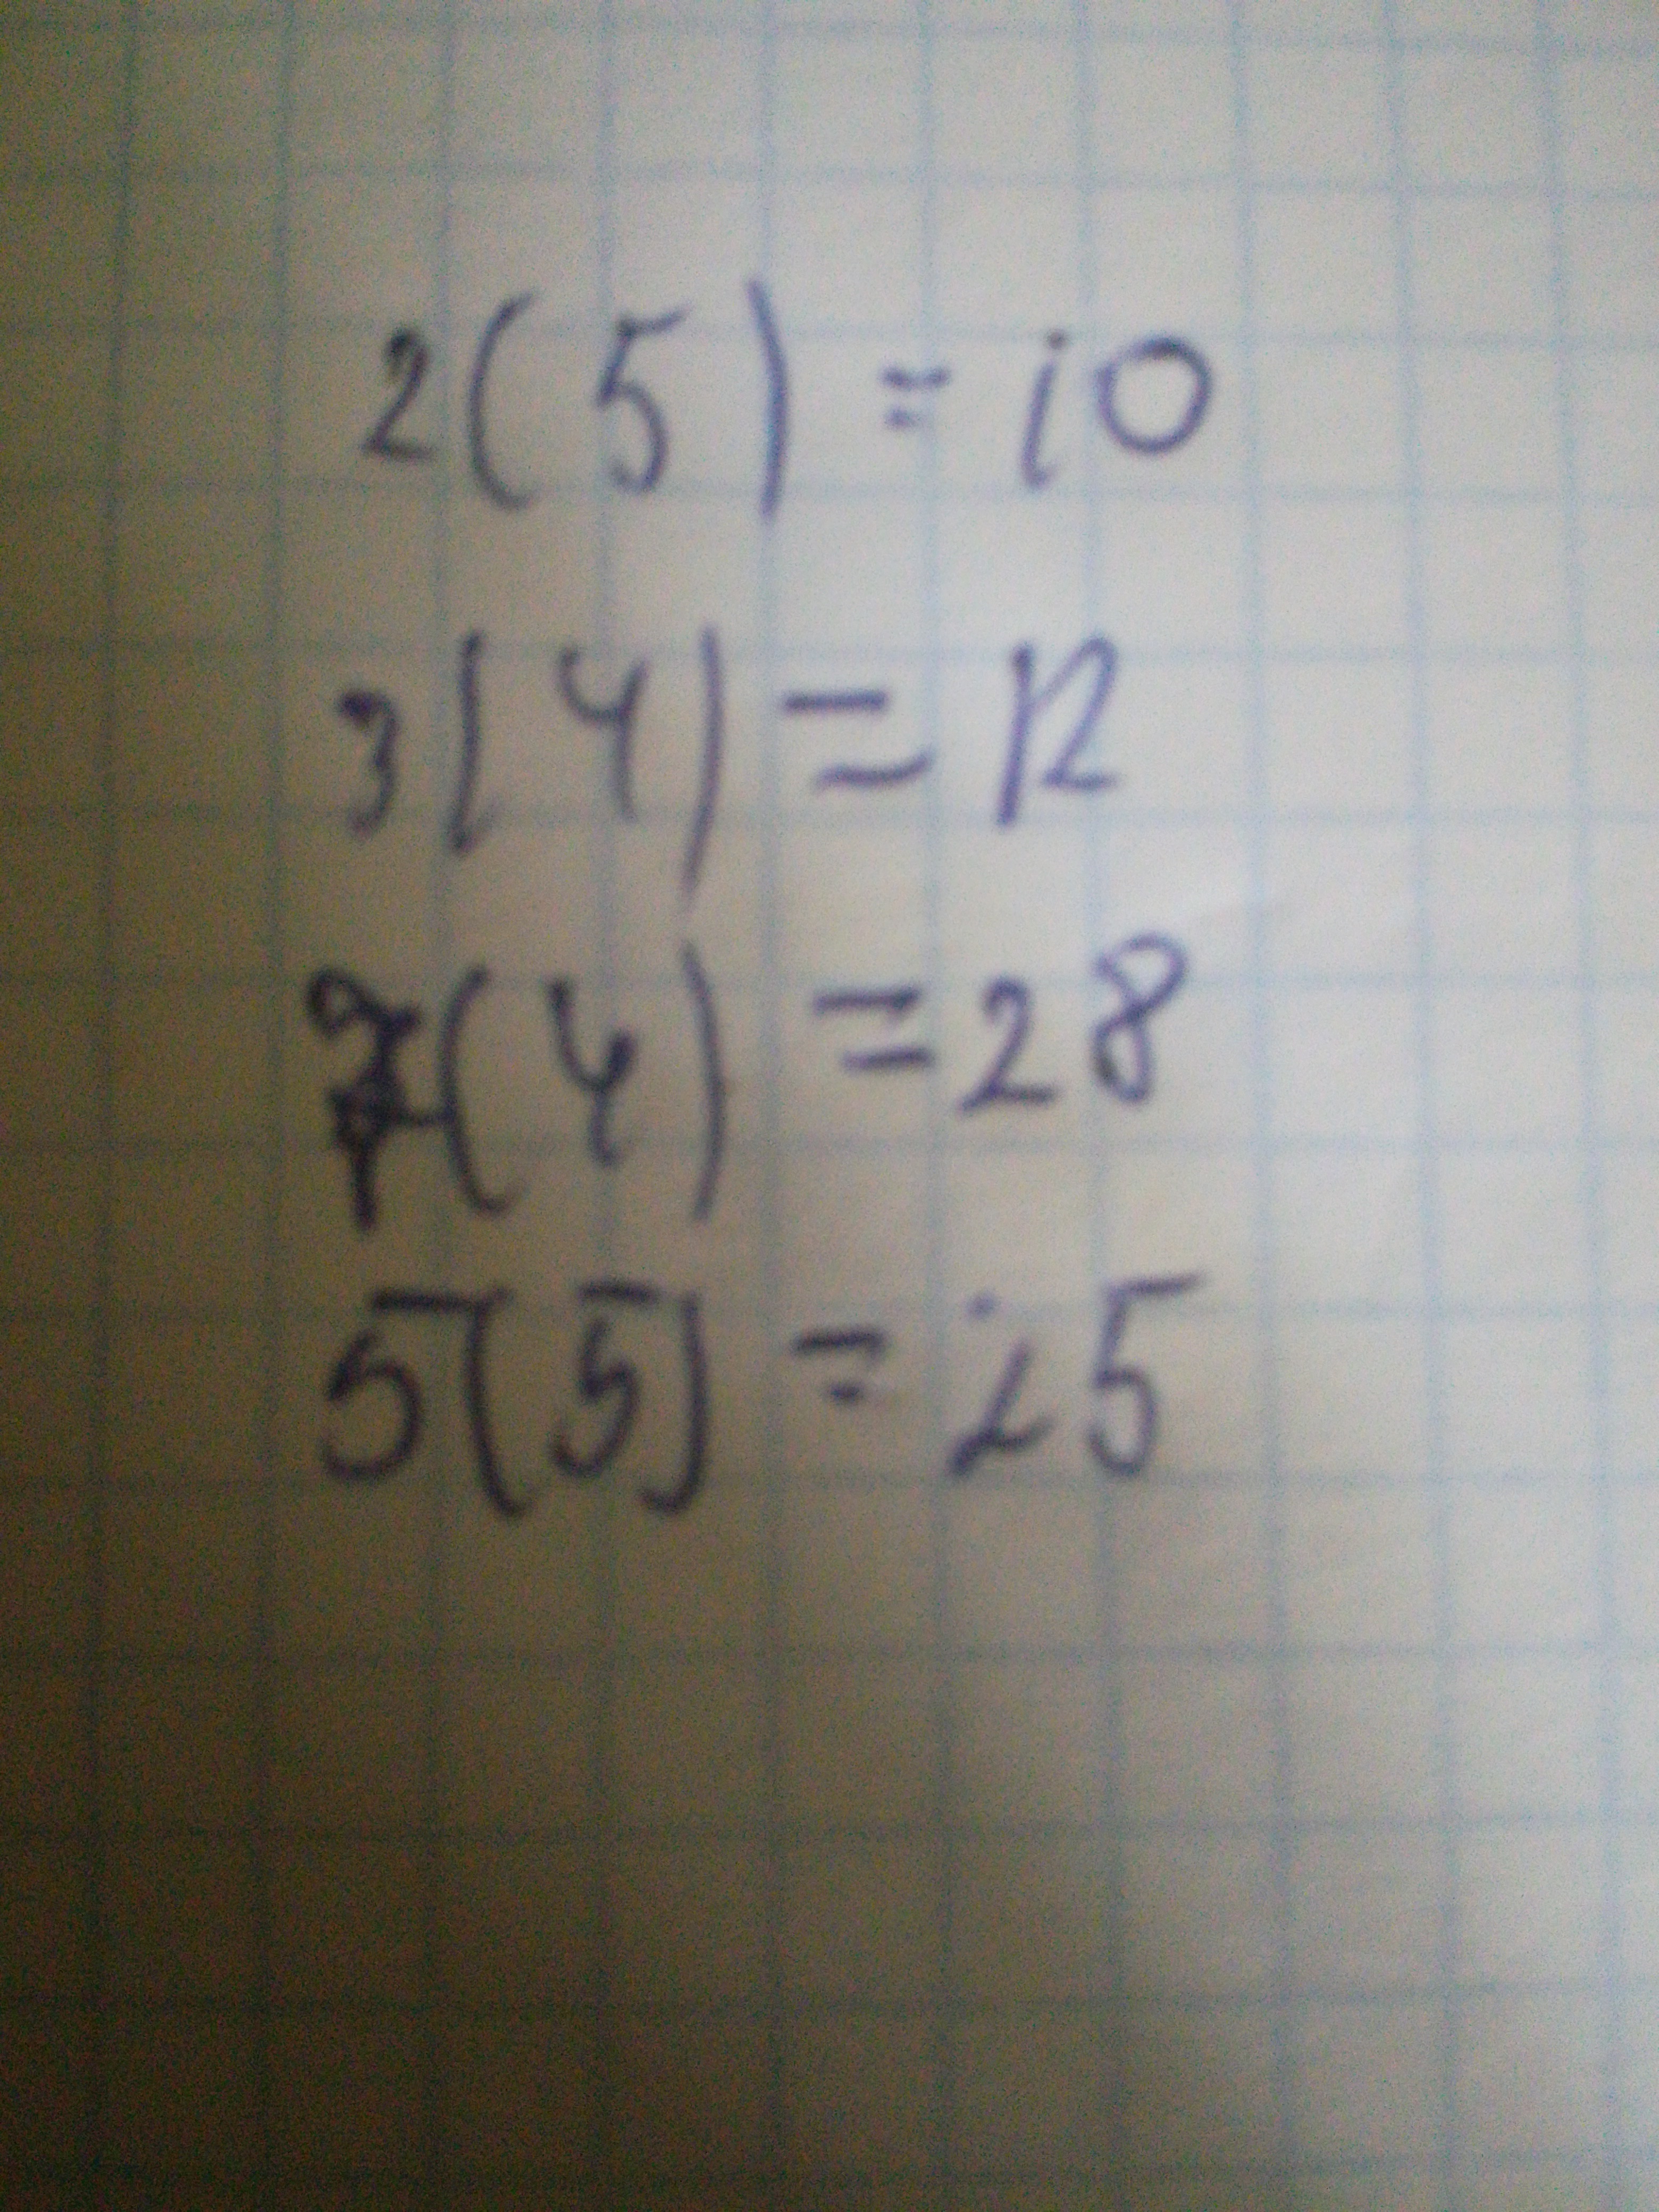 2(5) = 10
3(4) = 12
7(4) = 28
5(5) = 25